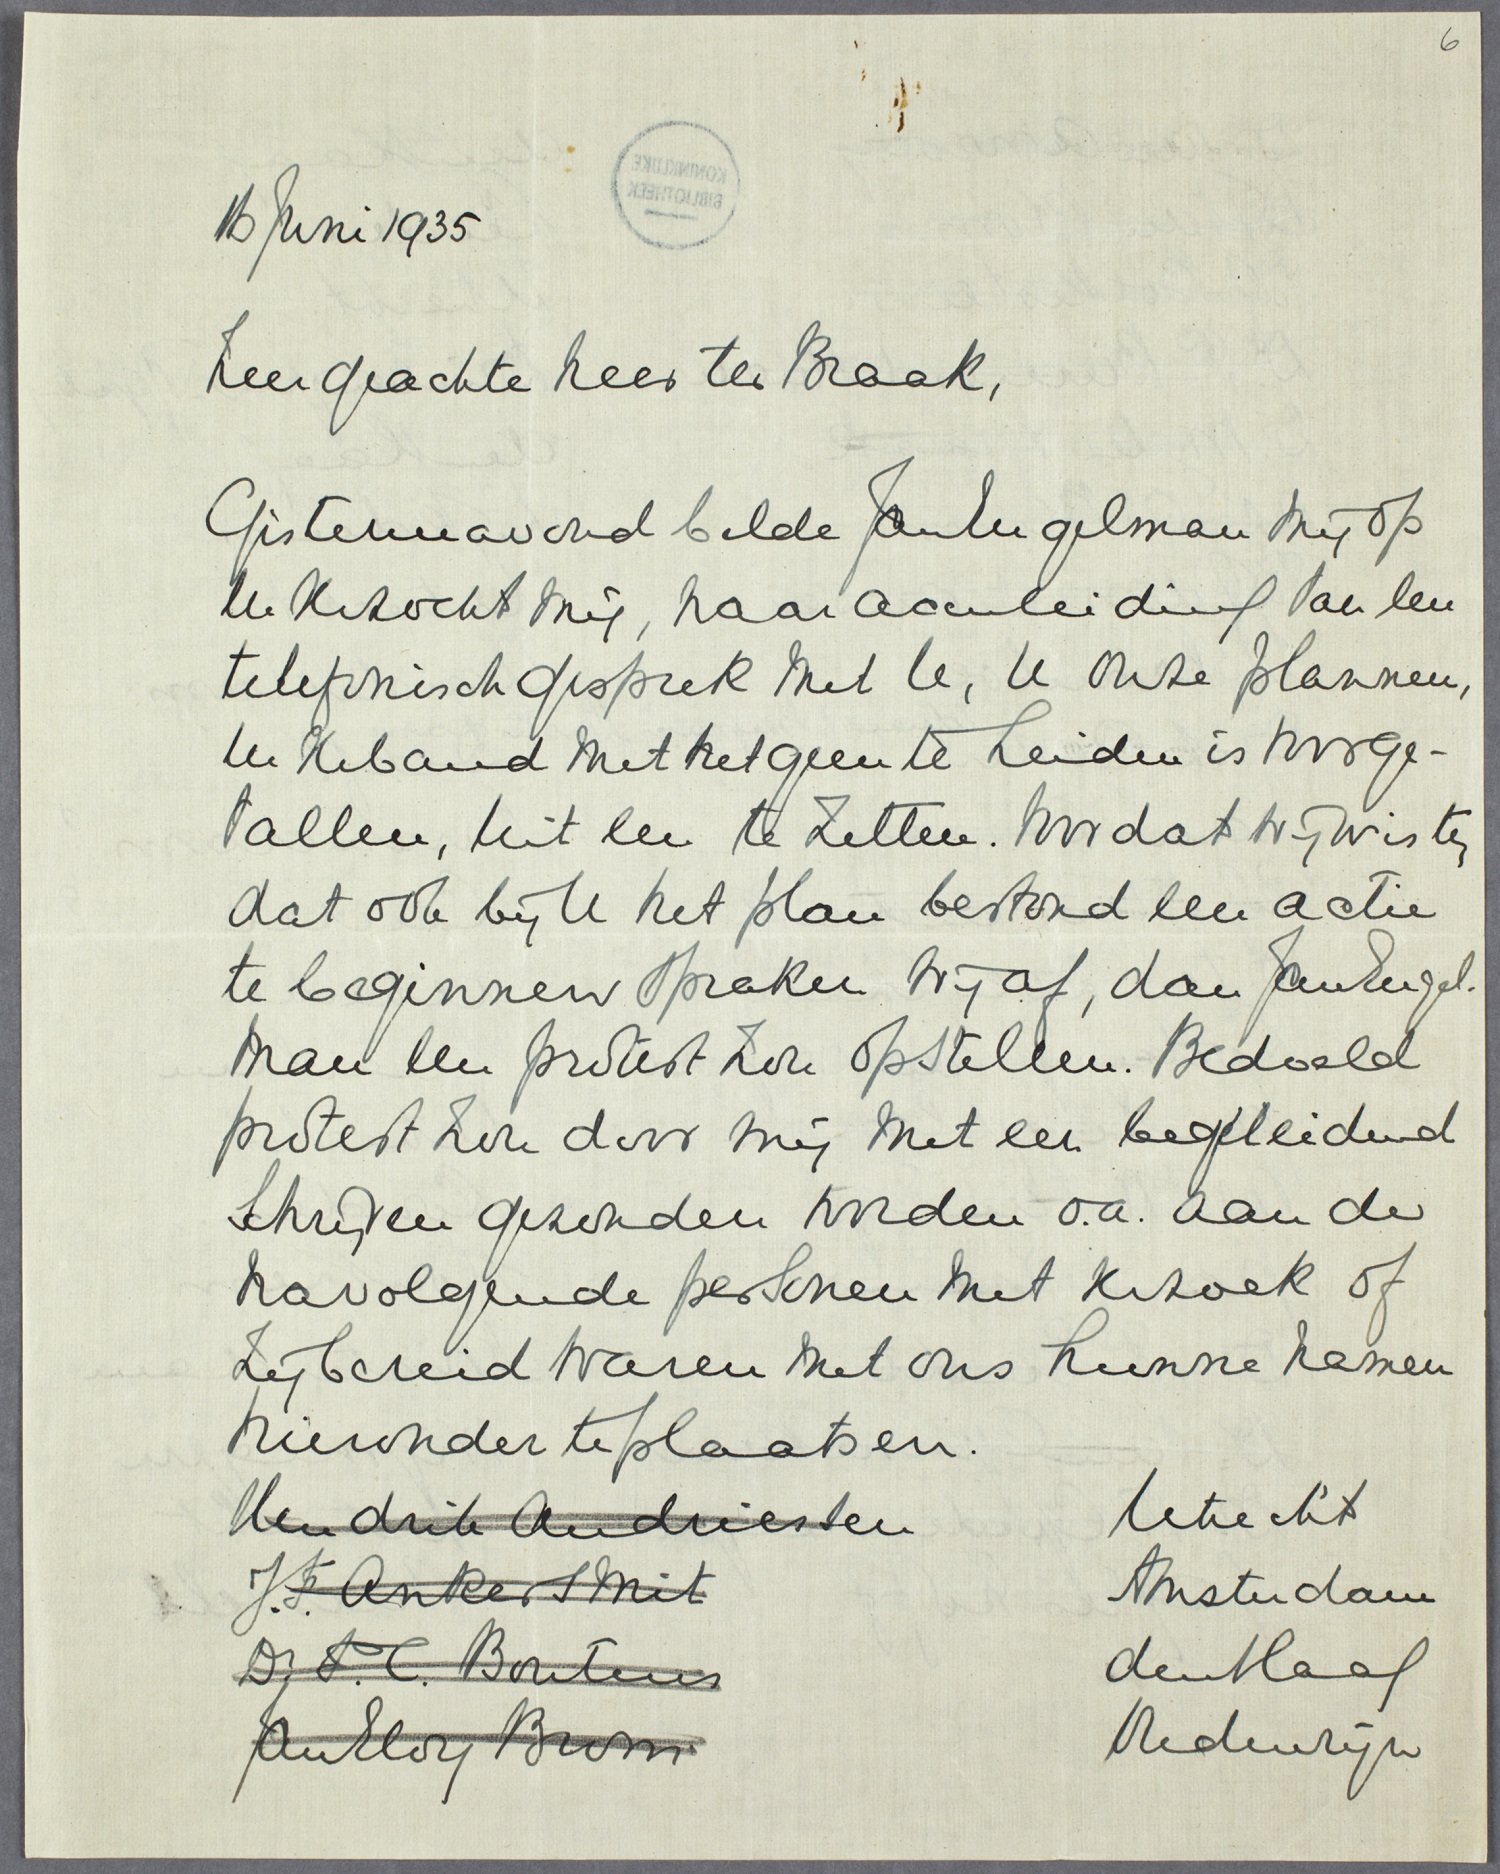 6
KONINKLIJKE
BIBLIOTHEEK
16 Juni 1935
Zeer geachte heer ter Braak,
Gisterenavond belde Jan Engelman mij op
en verzocht mij, naar aanleiding van een
telefonisch gesprek met U, U onze plannen,
in verband met hetgeen te Leiden is voorge-
vallen, uit een te zetten. Voordat wij wisten,
dat ook bij U het plan bestond een actie
te beginnen spraken wij af, dan Jan Engel-
man een protest zou opstellen. Bedoeld
protest zou door mij met een begeleidend
schrijven gezonden worden o.a. aan de
navolgende personen met verzoek of
zij bereid waren met ons hunne namen
hieronder te plaatsen.
Hendrik Andriessen Utrecht
J.F. Ankersmit Amsterdam
Dr P.C. Boutens den Haag
Jan Eloy Brom Rhedenrijn